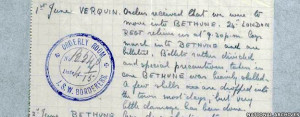 1st June VERQUIN. Orders received that we were to
move into BETHUNE; 24th LONDON
REGT relieve us at 9.30pm. Coy
march into BETHUNE and are
billeted. Billets rather
and special precautions taken as
BETHUNE was heavily shelled.
A few shells are dropped into
the town most days, but very
little damage has been done.
2nd June BETHUNE
ORDERLY ROOM
S.W. BORDERERS.
NATIONAL ARCHIVES